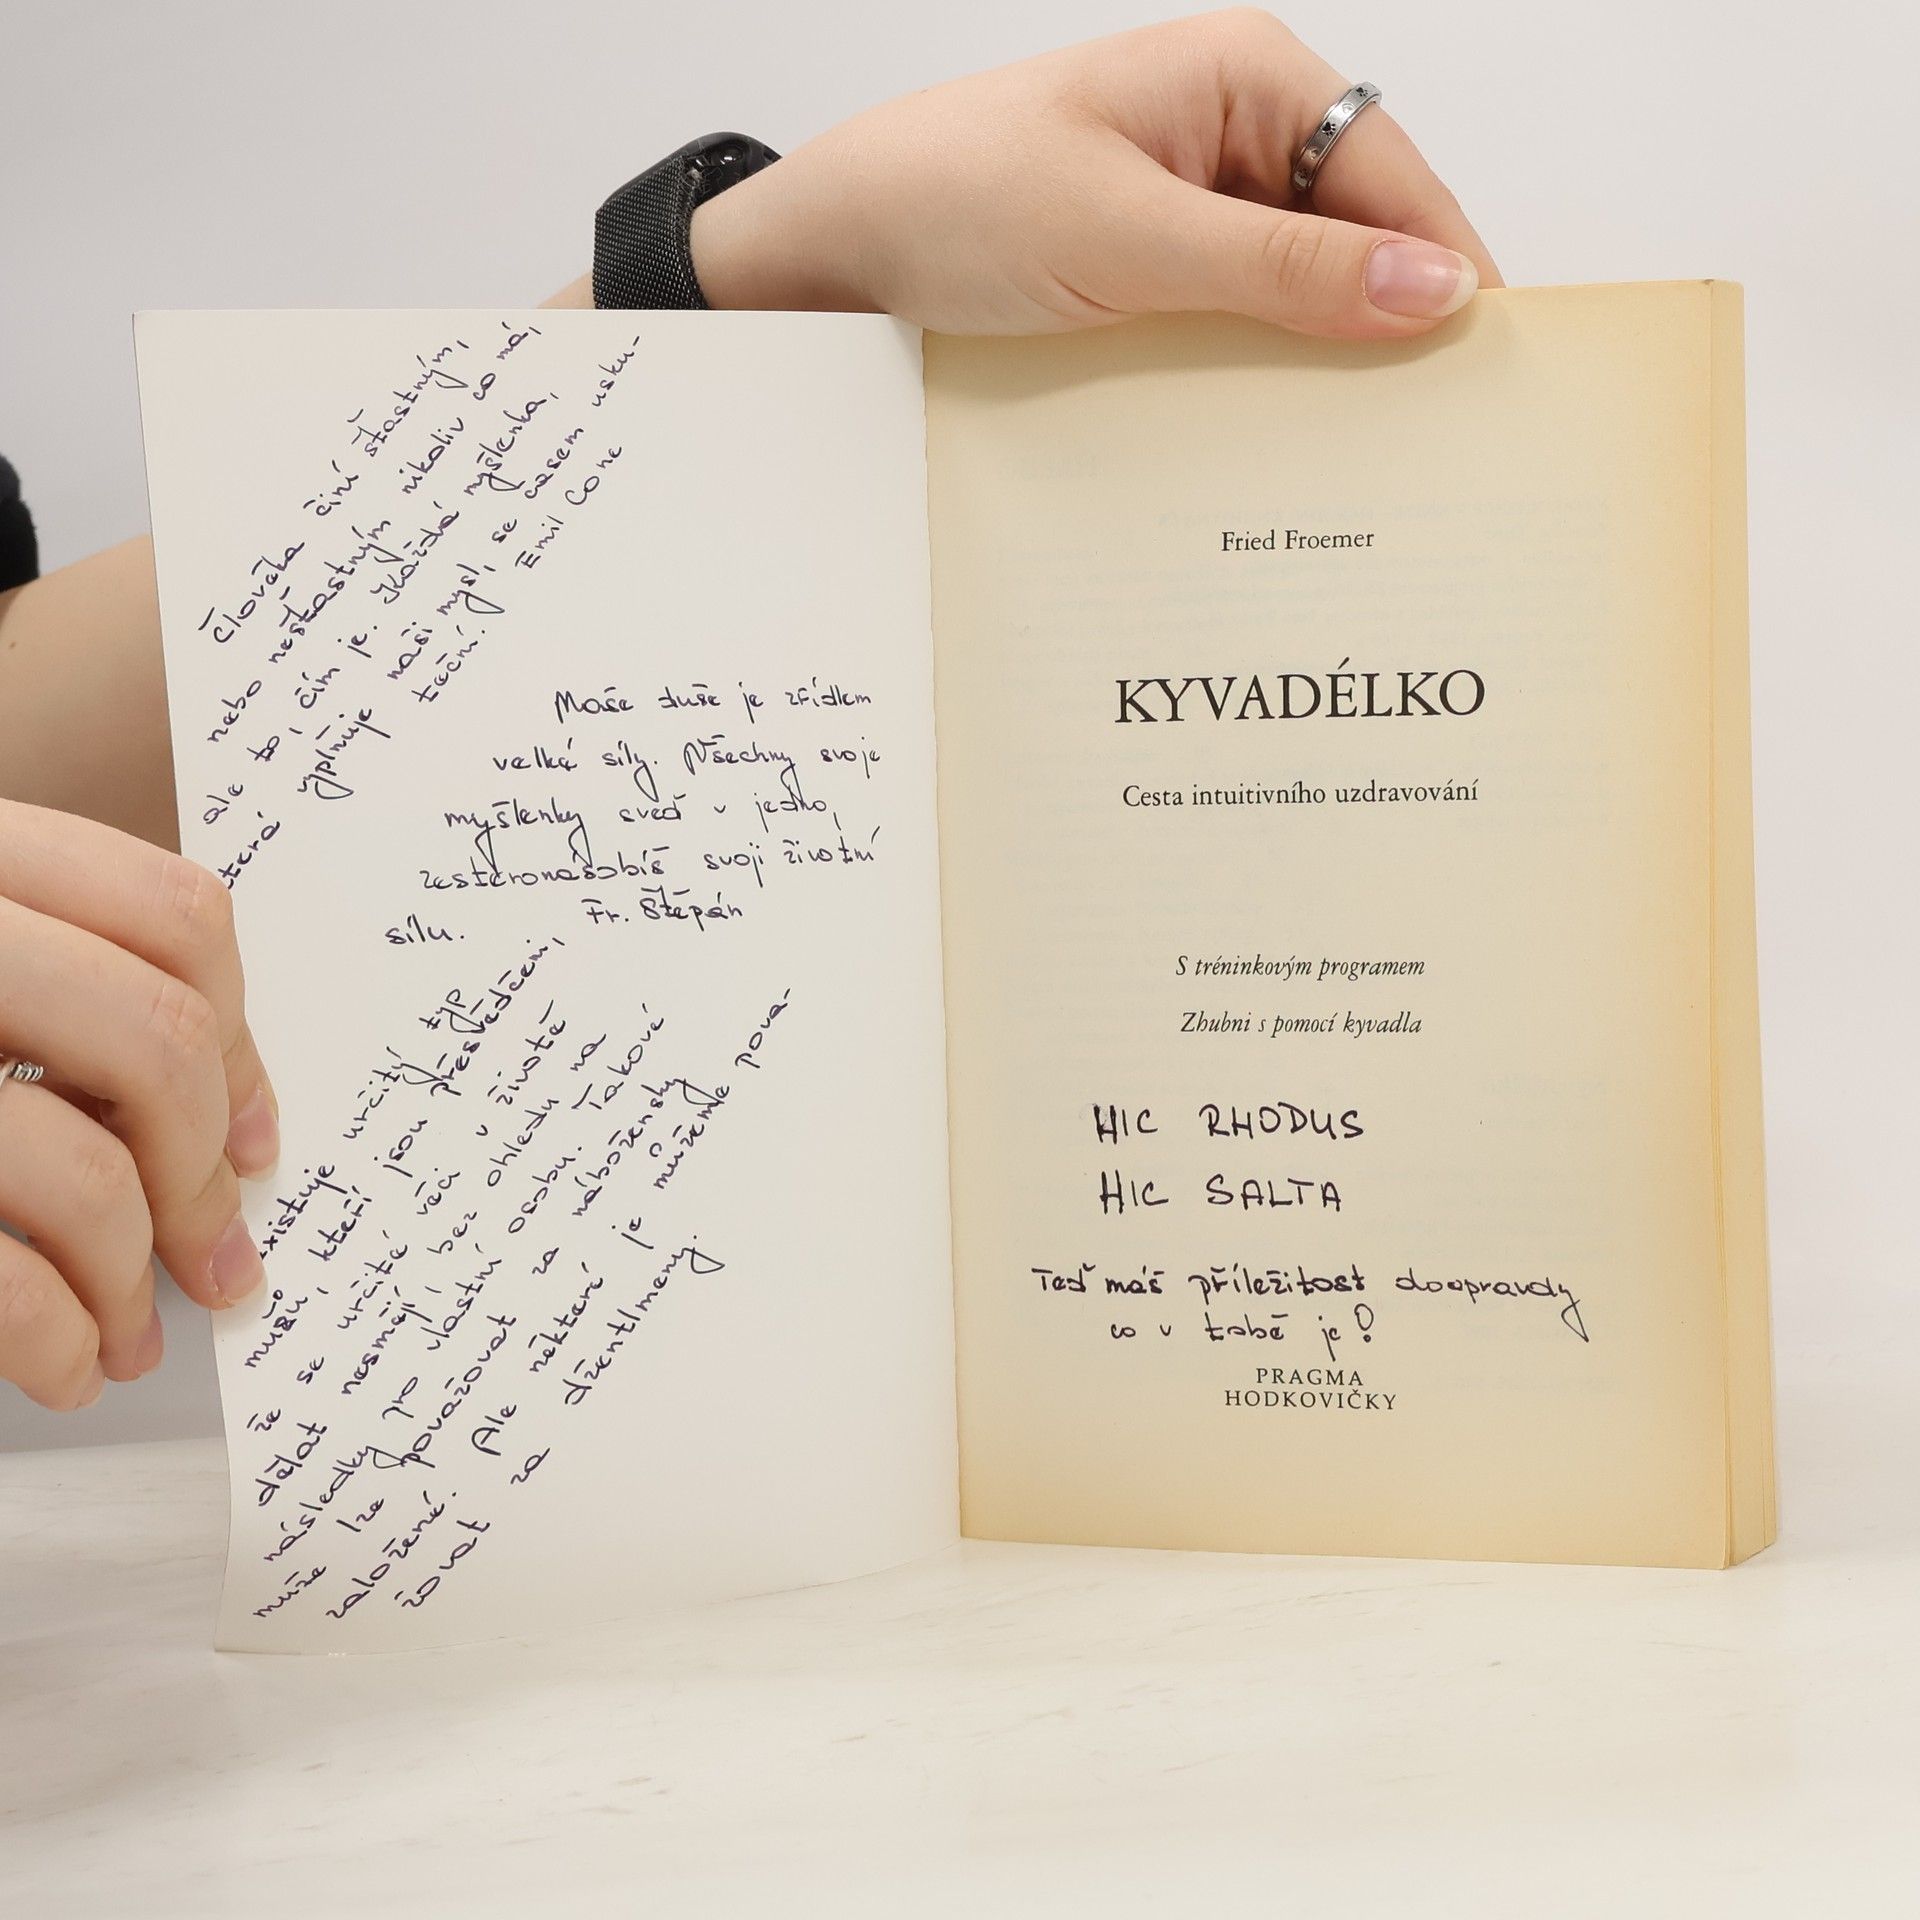 člověka činí šťastným,
nebo nešťastným nikoliv co má,
ale to, čím je. Každá myšlenka,
která vyplňuje naši mysl, se časem usku-
teční. Emil Cone
Maše duše je zřídlem
velké síly. Všechny svoje
myšlenky sveď v jedno,
zesteronásobíš svoji životní
sílu. Fr. Štěpán
existuje určitý typ
mužů, kteří jsou přesvědčeni,
že se určité věci v životě
dělat nesmějí bez ohledu na
následky pro vlastní osobu. Takové
muže lze považovat za nábožensky
založené. Ale některé je můžeme pova-
žovat za džentlmeny.
Fried Froemer
KYVADÉLKO
Cesta intuitivního uzdravování
S tréninkovým programem
Zhubni s pomocí kyvadla
HIC RHODUS
HIC SALTA
Teď máš příležitost doopravdy
co v tobě je!
PRAGMA
HODKOVIČKY